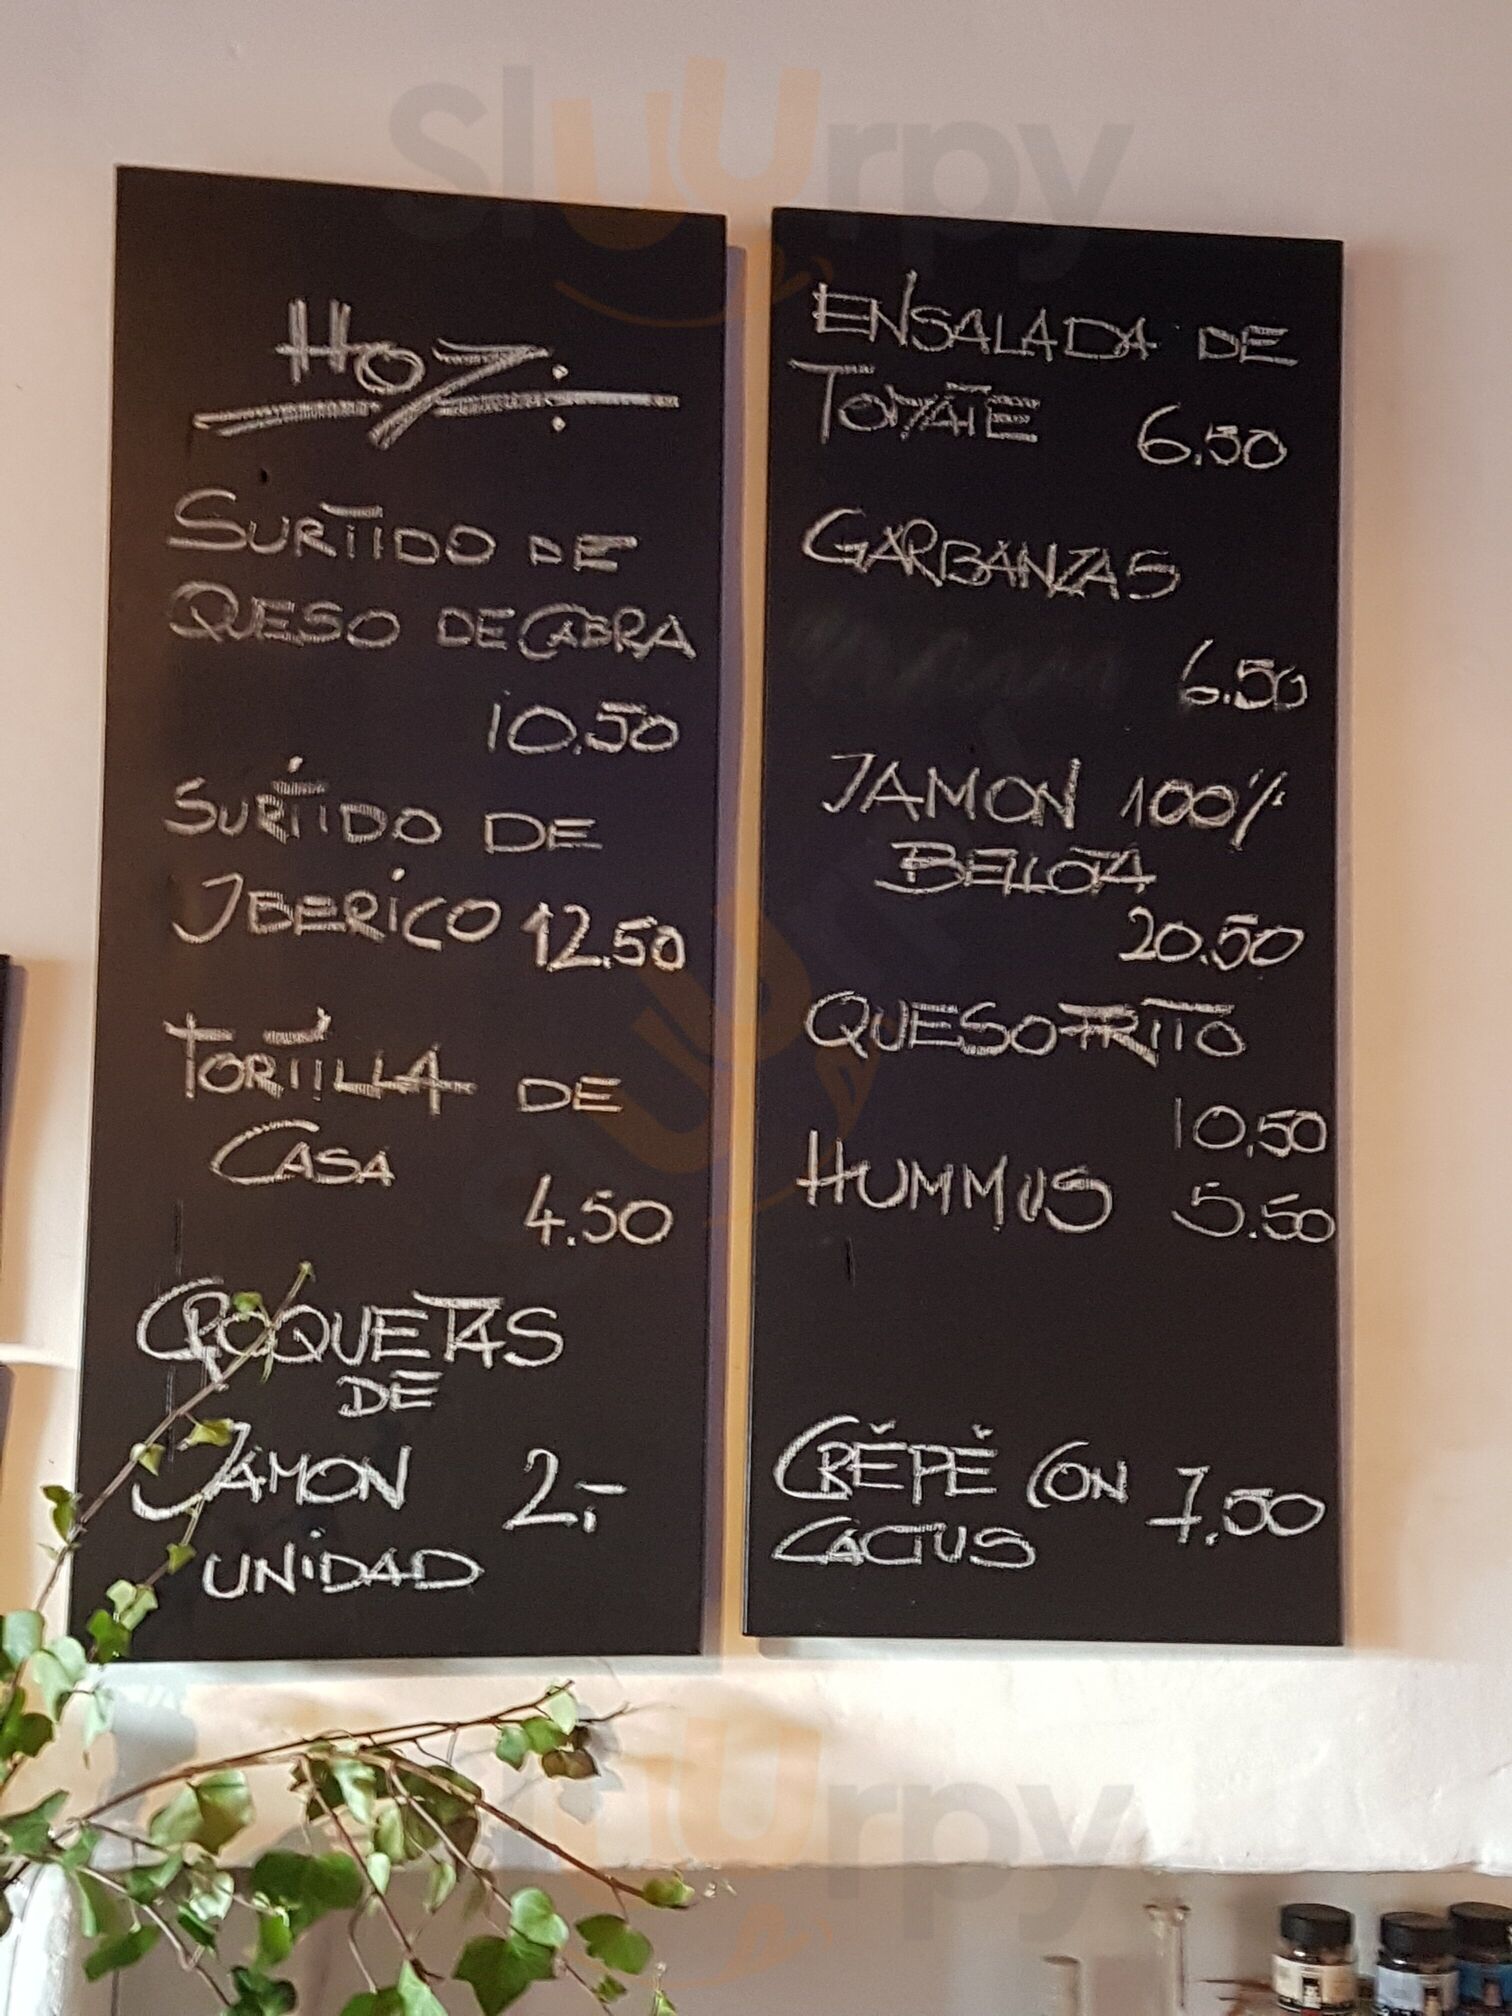 Sluurpy
HOY:
SURTIDO DE
QUESO DE CABRA
10.50
SURTIDO DE
IBERICO 12.50
TORTILLA DE
CASA
4.50
CROQUETAS
DE
JAMON 2,-
UNIDAD
ENSALADA DE
TOMATE 6.50
GARBANZAS
6.50
JAMON 100%
BELLOTA
20.50
QUESO FRITO
10,50
HUMMUS 5.50
CRÊPE CON 7,50
CACTUS
Sluurpy